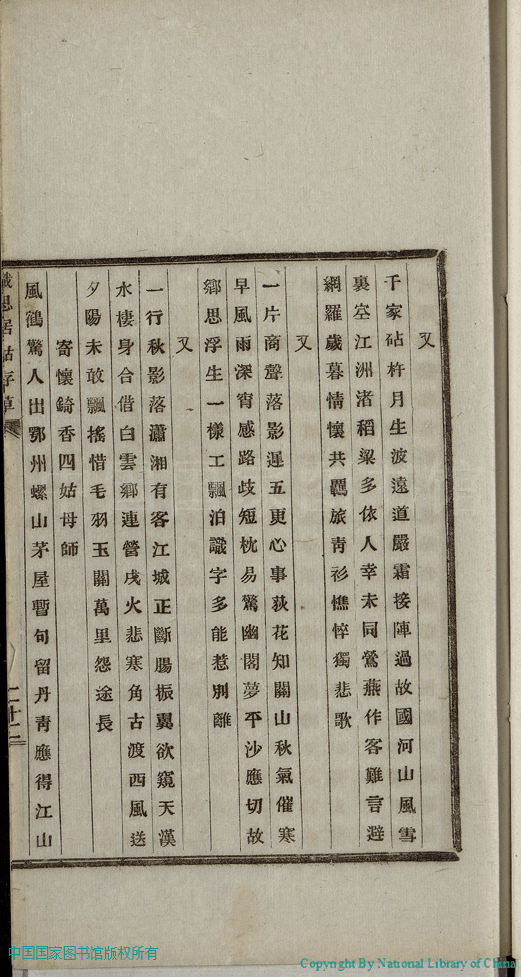 又
千家砧杵月生波遠道嚴霜接陣過故國河山風雪
裏空江洲渚稻粱多依人幸未同鶯燕作客難言避
網羅歲暮情懷共羈旅靑衫憔悴獨悲歌
又
一片商聲落影遲五更心事荻花知關山秋氣催寒
早風雨深宵感路歧短枕易驚幽閣夢平沙應切故
鄉思浮生一樣工飄泊識字多能惹別離
又
一行秋影落瀟湘有客江城正斷腸振翼欲窺天漢
水棲身合借白雲鄉連營戍火悲寒角古渡西風送
夕陽未敢飄搖惜毛羽玉關萬里怨途長
寄懷錡香四姑母師
風鶴驚人出鄂州螺山茅屋暫句留丹靑應得江山
思居
存草
二十二
中国国家图书馆版权所有
Copyright By National Library of China